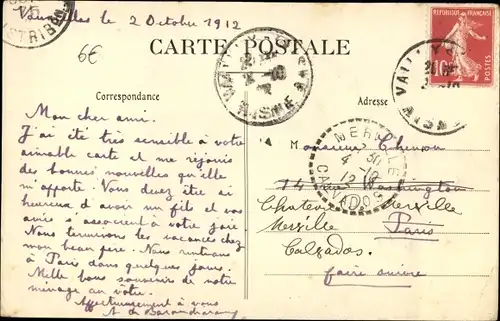 le 2 Octobre 1912
6€
CARTE POSTALE
Correspondance
Adresse
RÉPUBLIQUE FRANÇAISE
10
VAILLY
AISNE
VAILLY
AISNE
DISTRIBUTION
MERVILLE
CALVADOS
Mon cher ami.
J'ai été très sensible à votre
aimable carte et me réjouis
des bonnes nouvelles qu'elle
m'apporte. Vous devez être si
heureux d'avoir un fils et vos
amis s'associent à votre joie
Nous terminons les vacances chez
mon beau père. Nous rentrons
à Paris dans quelques jours.
Mille bons souvenirs de notre
ménage au vôtre.
Affectueusement à vous
Monsieur
14 Washington
Merville
Merville Paris
Calvados.
faire suivre